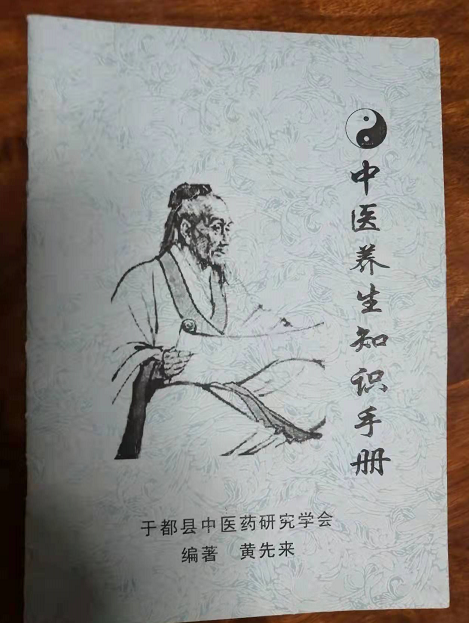 中医养生知识手册
于都县中医药研究学会
编著 黄先来